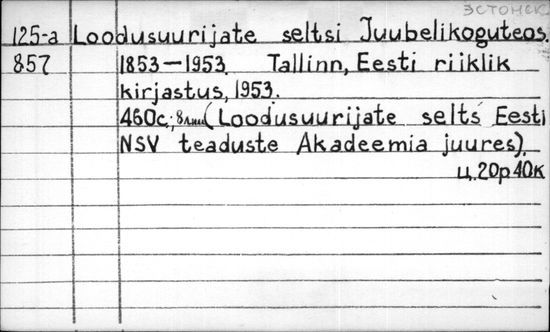 эстонск
125-a Loodusuurijate seltsi Juubelikoguteos.
857 1853-1953. Tallinn, Eesti riiklik
kirjastus, 1953.
460c.; 8 л.ил (Loodusuurijate selts Eesti
NSV teaduste Akadeemia juures).
ц.20р40к